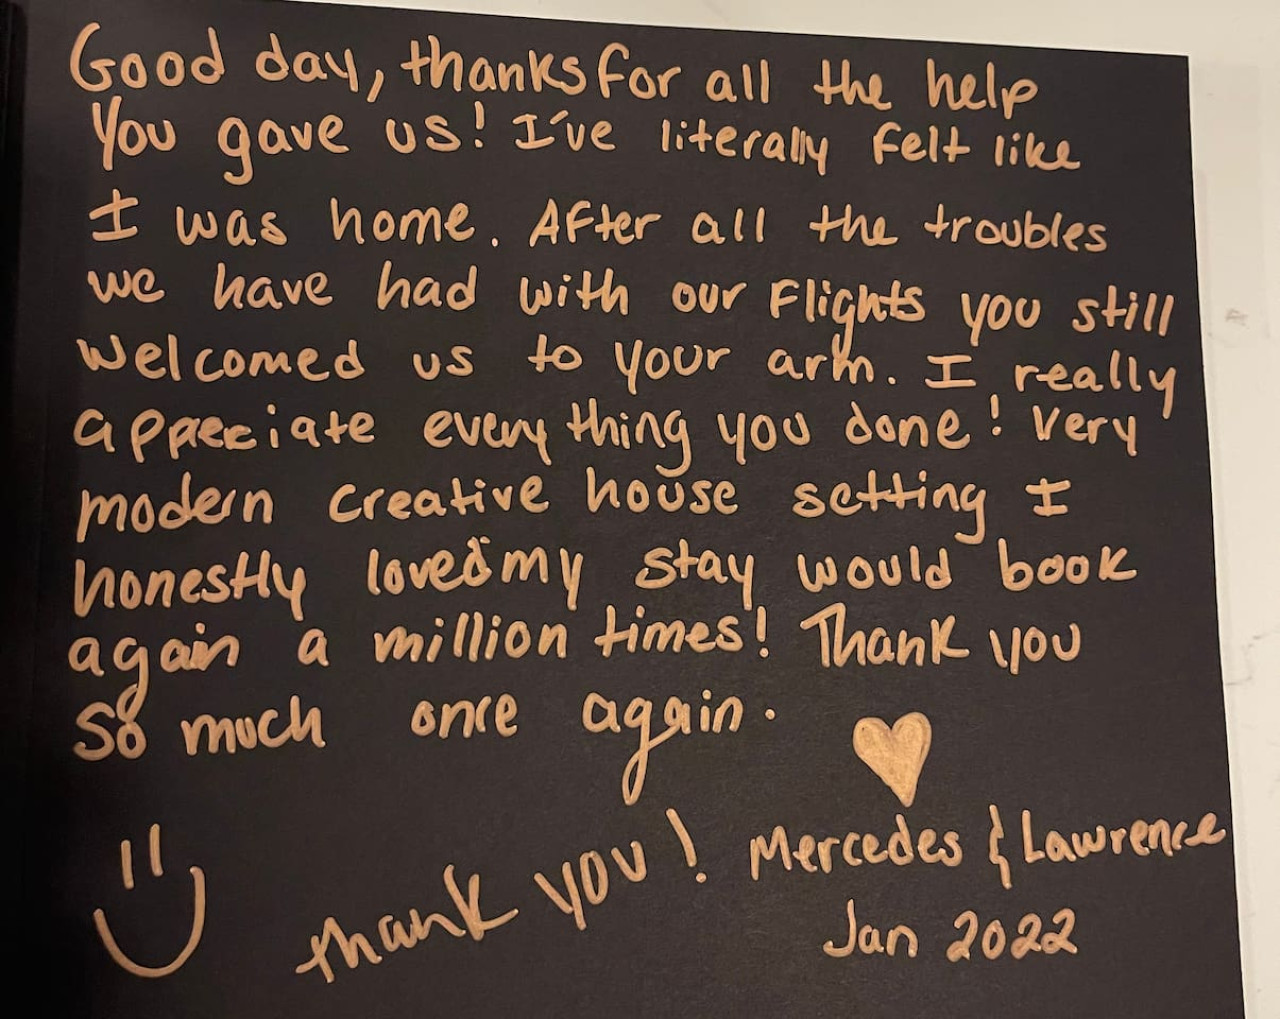 Good day, thanks for all the help
You gave us! I've literally felt like
I was home. After all the troubles
we have had with our Flights you still
welcomed us to your arm. I really
appreciate everything you done! Very
modern creative house setting I
honestly loved my stay would book
again a million times! Thank you
so much once again.
thank you! Mercedes & Lawrence
Jan 2022